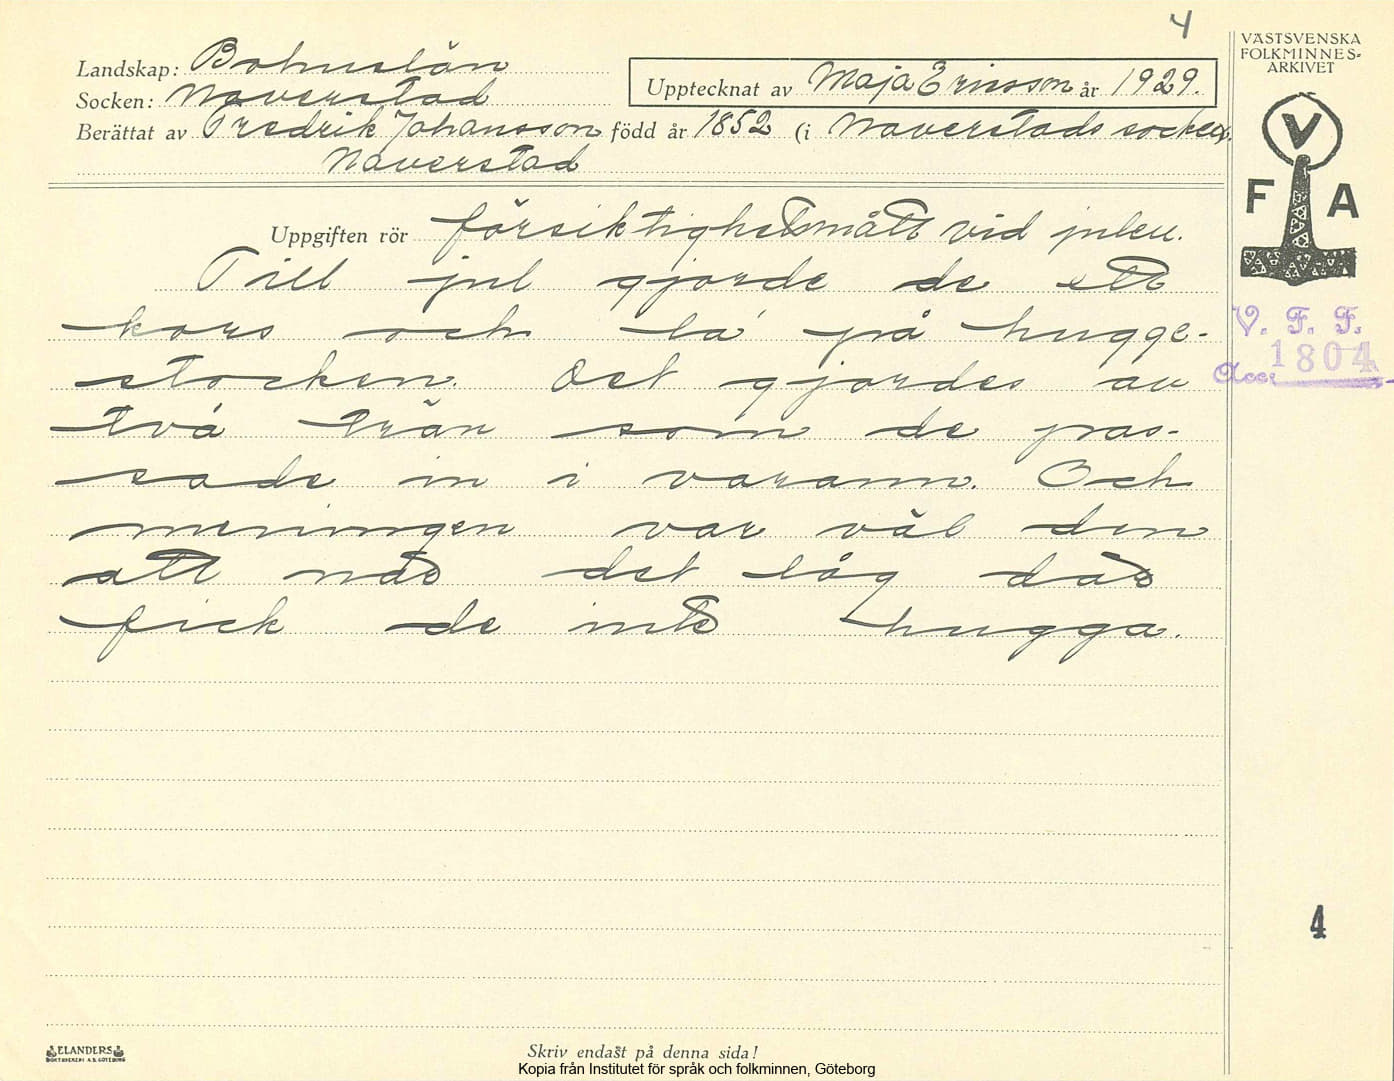 4
VÄSTSVENSKA
FOLKMINNES-
ARKIVET
Landskap: Bohuslän
Socken: Naverstad
Upptecknat av Maja Ericsson år 1929.
Berättat av Fredrik Johansson född år 1852 (i Naverstads socken.
Naverstad
V
F A
Uppgiften rör försiktighetsmått vid julen.
Till jul gjorde de ett
kors och la' på hugge-
stocken. Det gjordes av
två trän som de pas-
sade in i varann. Och
meningen var väl den
att när det låg där
fick de inte hugga.
V. F. F.
Acc. 1804
4
ELANDERS
BOKTRYCKERI A.B. GÖTEBORG
Skriv endast på denna sida!
Kopia från Institutet för språk och folkminnen, Göteborg